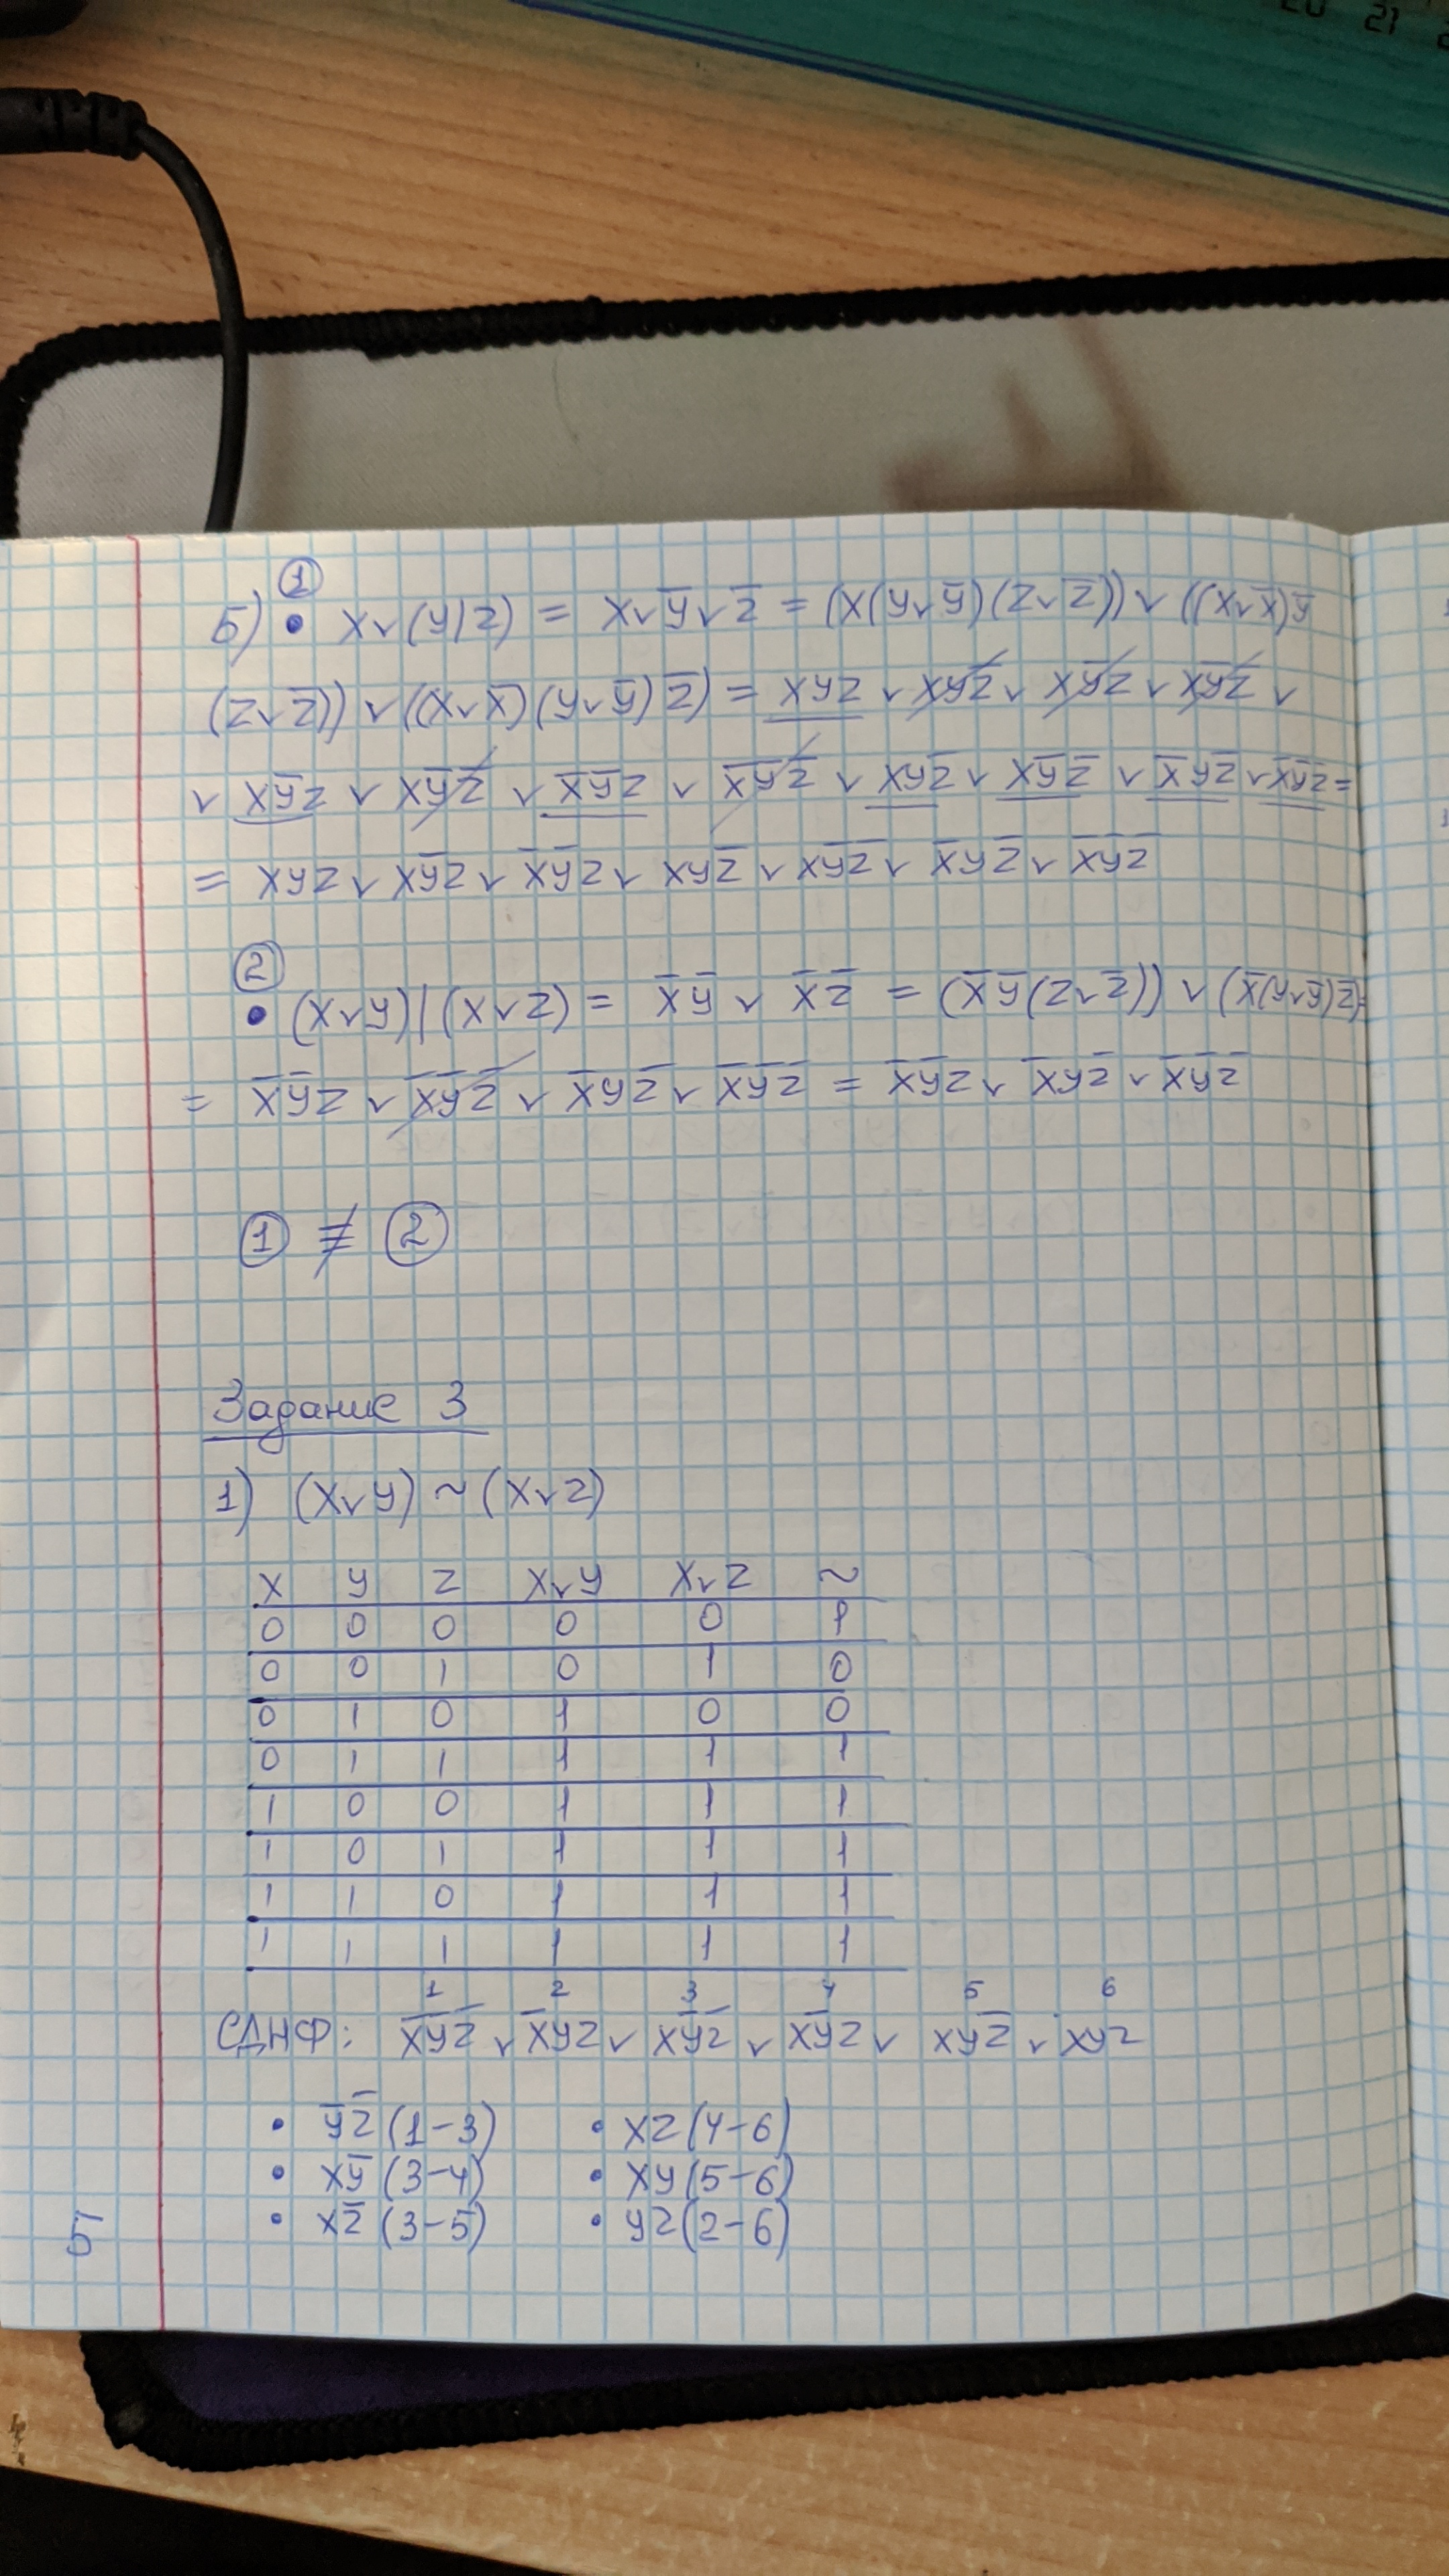 20 21
①
5) • x∨(y|z) = x∨y̅∨z̅ = (x(y∨y̅)(z∨z̅))∨((x∨x̅)y̅
(z∨z̅))∨((x∨x̅)(y∨y̅)z̅) = xyz ∨ xyz̅ ∨ xy̅z ∨ xy̅z̅ ∨
∨ xy̅z ∨ xy̅z̅ ∨ x̅y̅z ∨ x̅y̅z̅ ∨ xyz̅ ∨ xy̅z̅ ∨ x̅yz̅ ∨ x̅y̅z̅ =
= xyz ∨ xy̅z ∨ x̅y̅z ∨ xyz̅ ∨ xy̅z̅ ∨ x̅yz̅ ∨ x̅y̅z̅
②
• (x∨y)|(x∨z) = x̅y̅ ∨ x̅z̅ = (x̅y̅(z∨z̅)) ∨ (x̅(y∨y̅)z̅)=
= x̅y̅z ∨ x̅y̅z̅ ∨ x̅yz̅ ∨ x̅y̅z̅ = x̅y̅z ∨ x̅yz̅ ∨ x̅y̅z̅
① ≢ ②
Задание 3
1) (x∨y) ~ (x∨z)
x y z x∨y x∨z ~
0 0 0 0 0 1
0 0 1 0 1 0
0 1 0 1 0 0
0 1 1 1 1 1
1 0 0 1 1 1
1 0 1 1 1 1
1 1 0 1 1 1
1 1 1 1 1 1
1 2 3 4 5 6
СДНФ: x̅y̅z̅ ∨ x̅yz ∨ xy̅z̅ ∨ xy̅z ∨ xyz̅ ∨ xyz
• y̅z̅ (1-3) • xz (4-6)
• xy̅ (3-4) • xy (5-6)
• xz̅ (3-5) • yz (2-6)
5